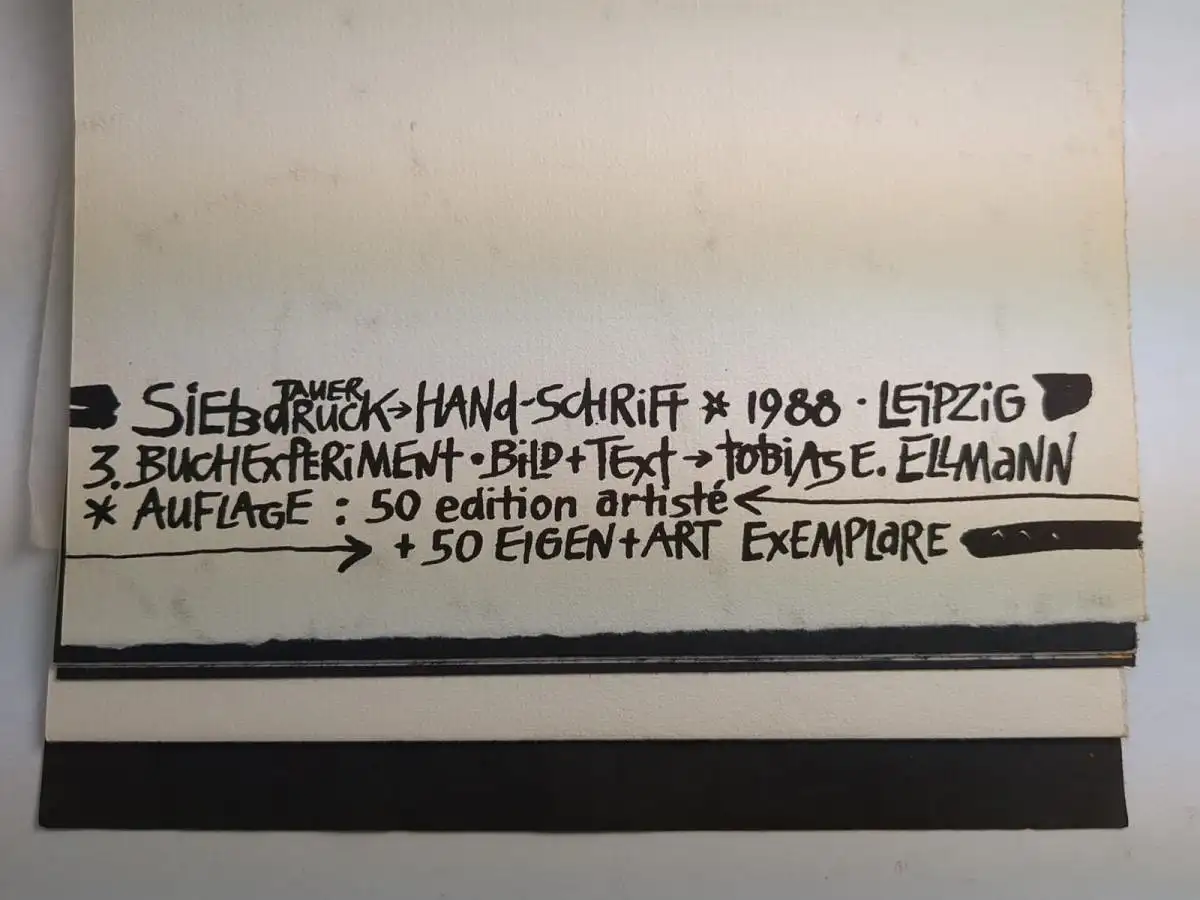 TAUER
SiEbdRUCK→HANd-SCHRiFt * 1988 · LEiPZiG
3. BUCHExPERiMENt · BiLD + TExt → tObiAS E. ELLMaNN
* AUFLAGE : 50 edition artisté ←
→ + 50 EIGEN+ART EXEMPLaRE